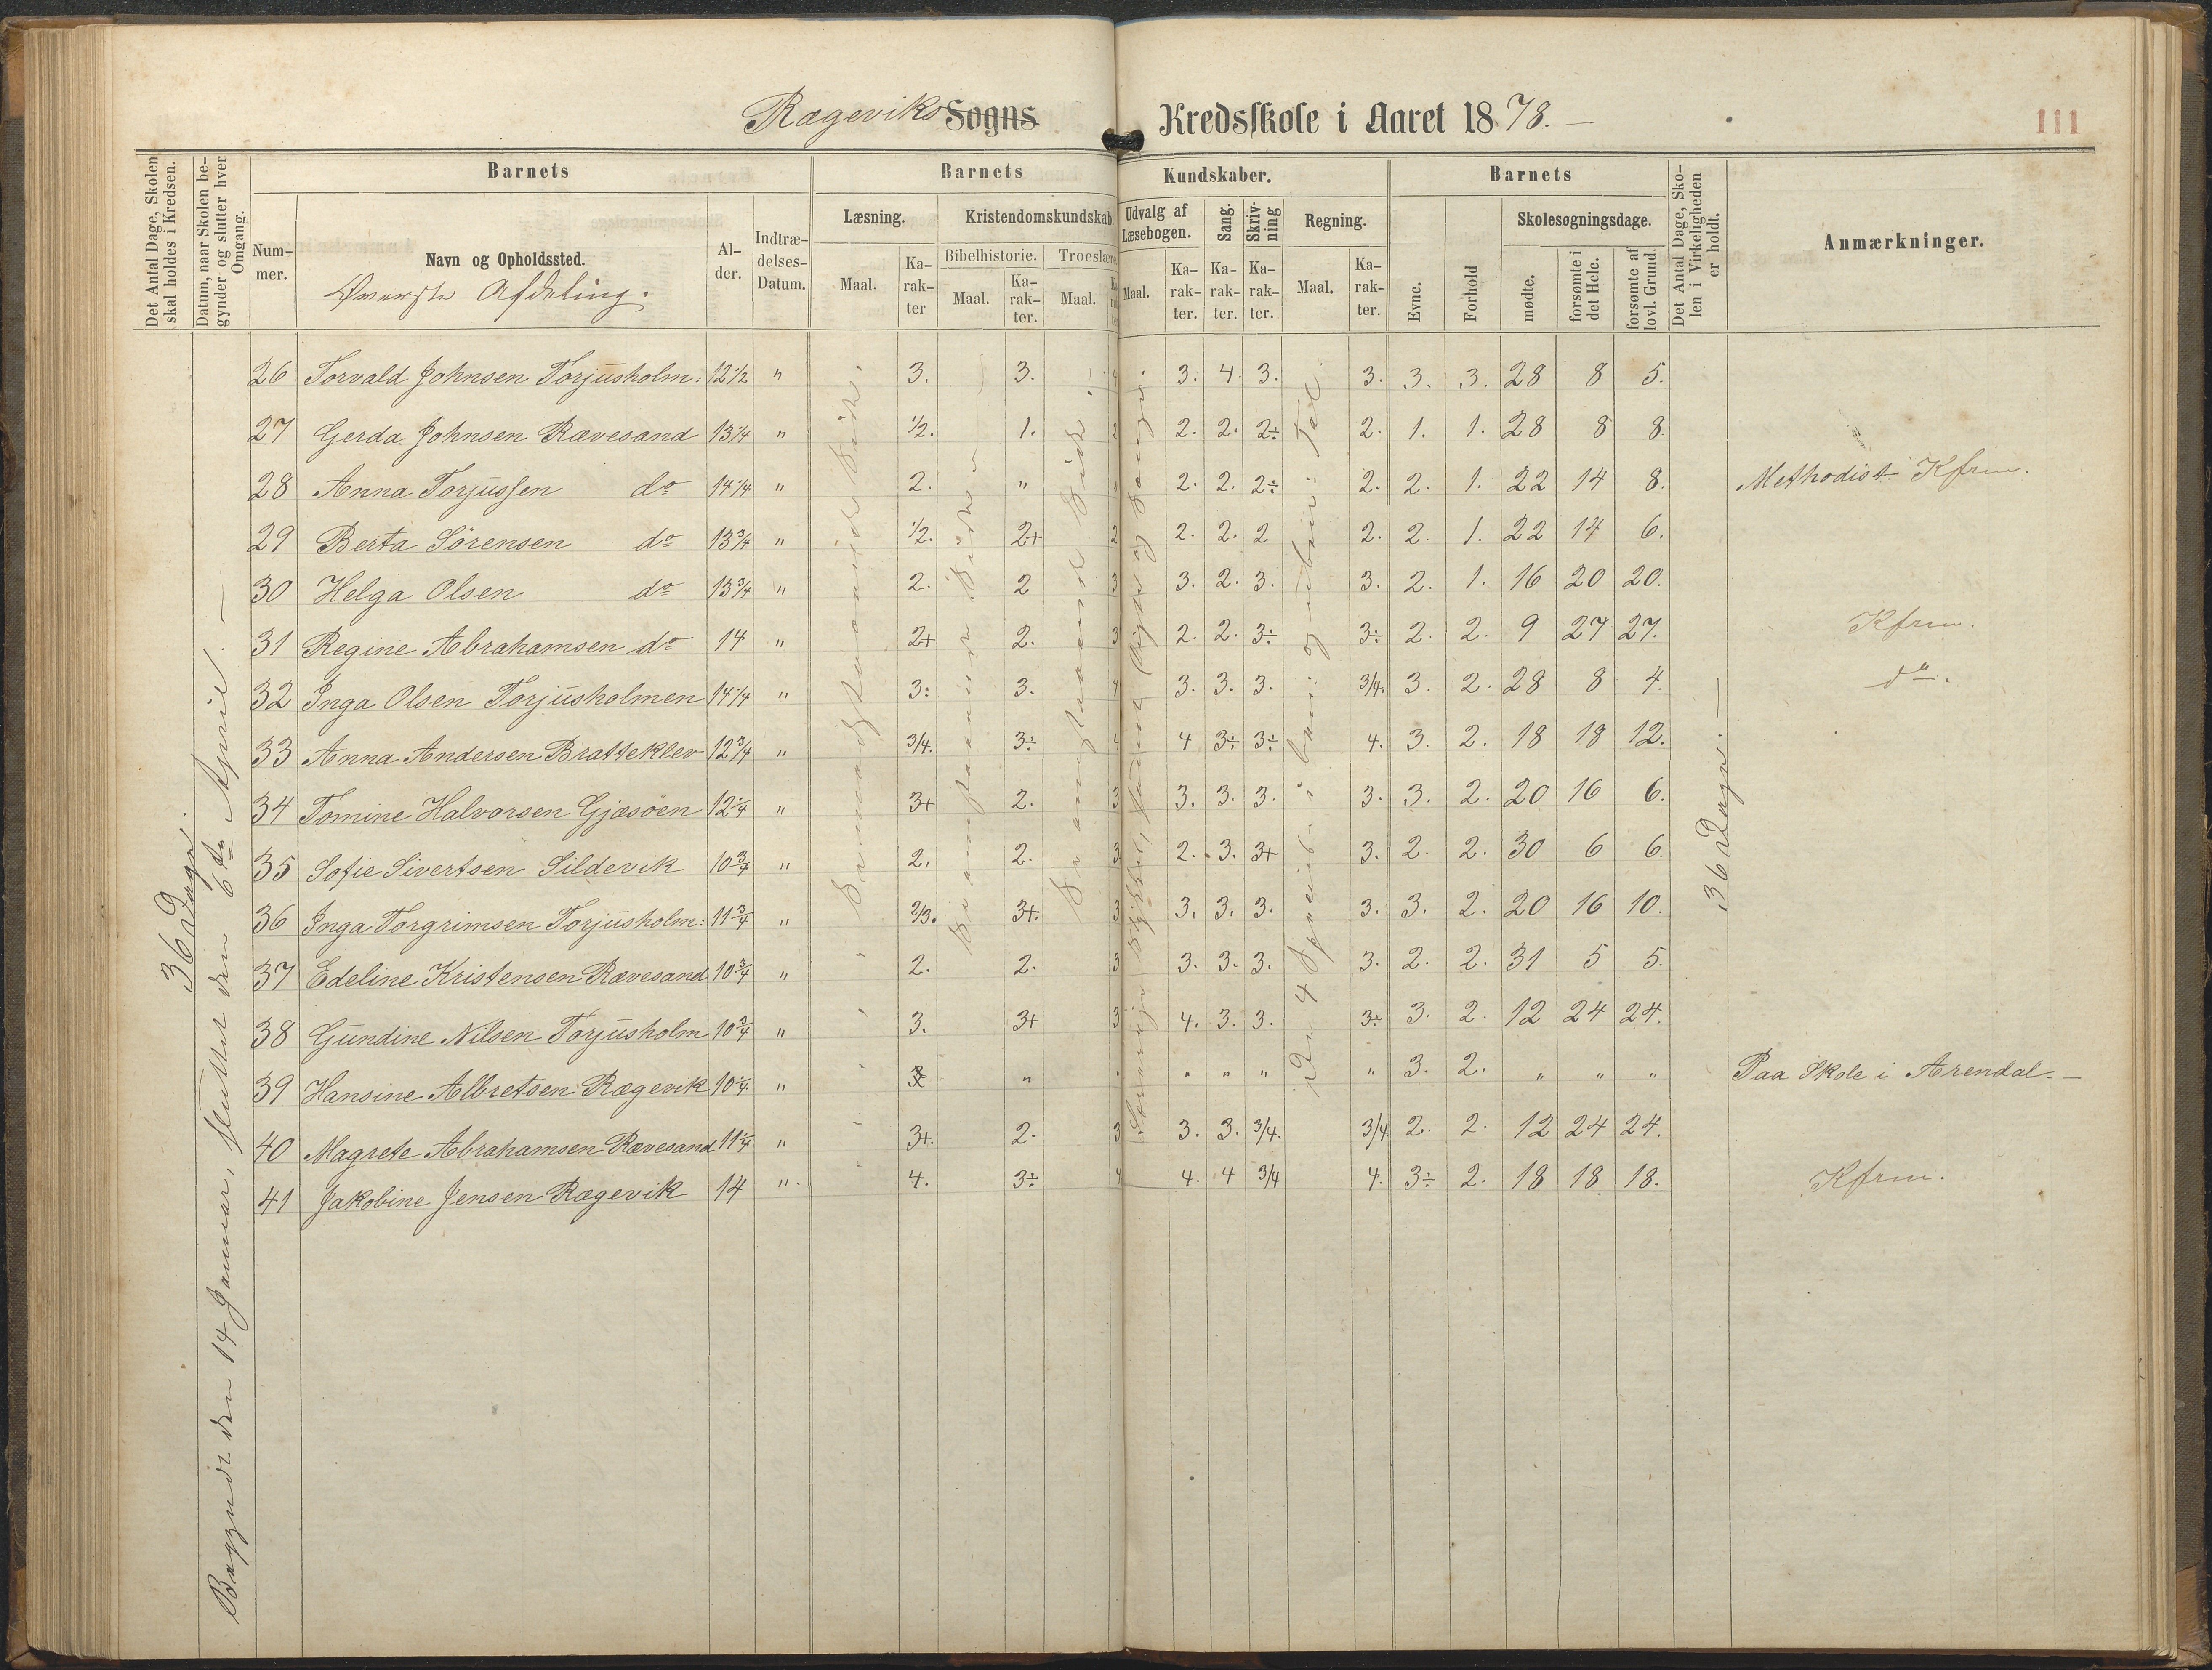 Rægeviks Sogns Kredsskole i Aaret 1878.
111
Det Antal Dage, Skolen skal holdes i Kredsen.
Datum, naar Skolen begynder og slutter hver Omgang.
Barnets
Nummer.
Navn og Opholdssted.
Øverste Afdeling.
Alder.
Indtrædelses-Datum.
Barnets Kundskaber.
Læsning.
Maal.
Karakter
Kristendomskundskab.
Bibelhistorie.
Maal.
Karakter.
Troeslære
Maal.
Udvalg af Læsebogen.
Maal.
Karakter.
Sang.
Karakter.
Skrivning
Karakter.
Regning.
Maal.
Karakter.
Barnets
Evne.
Forhold
Skolesøgningsdage.
mødte.
forsømte i det Hele.
forsømte af lovl. Grund.
Det Antal Dage, Skolen i Virkeligheden er holdt.
Anmærkninger.
36 Dage.
Begyndt den 14 Januar, sluttet den 6te April.
36 Dage.
26 Torvald Johnsen Torjusholm: 12 1/2 " 3. 3. 4 3. 4. 3. 3. 3. 3. 28 8 5.
27 Gerda Johnsen Rævesand 13 1/4 " 1/2. 1. 2 2. 2. 2÷ 2. 1. 1. 28 8 8.
28 Anna Torjussen do 14 1/4 " 2. " " 2. 2. 2÷ 2. 2. 1. 22 14 8. Methodist. Kfrm.
29 Berta Sörensen do 13 3/4 " 1/2. 2+ 2 2. 2. 2 2. 2. 1. 22 14 6.
30 Helga Olsen do 13 3/4 " 2. 2 3 3. 2. 3. 3. 2. 1. 16 20 20.
31 Regine Abrahamsen do 14 " 2+ 2. 3 2. 2. 3÷ 3÷ 2. 2. 9 27 27. Kfrm.
32 Inga Olsen Torjusholmen 14 1/4 " 3: 3. 4 3. 3. 3. 3/4. 3. 2. 28 8 4. do.
33 Anna Andersen Bratteklev 12 3/4 " 3/4. 3÷ 4 4 3÷ 3÷ 4. 3. 2. 18 18 12.
34 Tomine Halvorsen Gjæsöen 12 1/4 " 3+ 2. 3 3. 3. 3. 3. 3. 2. 20 16 6.
35 Sofie Sivertsen Sildevik 10 3/4 " 2. 2. 3 2. 3. 3+ 3. 2. 2. 30 6 6.
36 Inga Torgrimsen Torjusholm: 11 3/4 " 2/3. 3+. 3 3. 3. 3. 3. 3. 2. 20 16 10.
37 Edeline Kristensen Rævesand 10 3/4 " 2. 2. 3 3. 3. 3. 3. 2. 2. 31 5 5.
38 Gundine Nilsen Torjusholm 10 3/4 " 3. 3+ 3 4. 3. 3. 3÷ 3. 2. 12 24 24.
39 Hansine Albretsen Rægevik 10 1/4 " " " " " " 3. 2. " " " Paa Skole i Arendal.
40 Magrete Abrahamsen Rævesand 11 1/4 " 3+. 2. 3 3. 3. 3/4. 3/4 2. 2. 12 24 24.
41 Jakobine Jensen Rægevik 14 " 4. 3÷ 4 4. 4 3/4 4. 3÷ 2. 18 18 18. Kfrm.